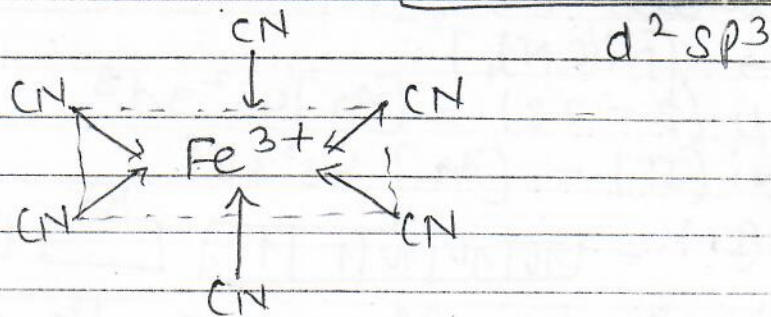 CN
d² sp³
CN CN
Fe³⁺
CN CN
CN